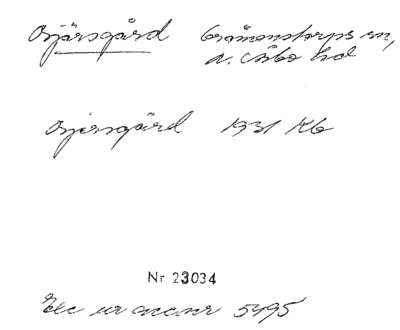 Bjärsgård Gråmanstorps sn,
N. Åsbo hd
Bjersgård 1931 Kb
Nr 23034
Exc ur acc nr 5495